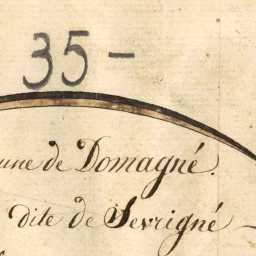 35 -
une de Domagné.
dite de Sevrigné